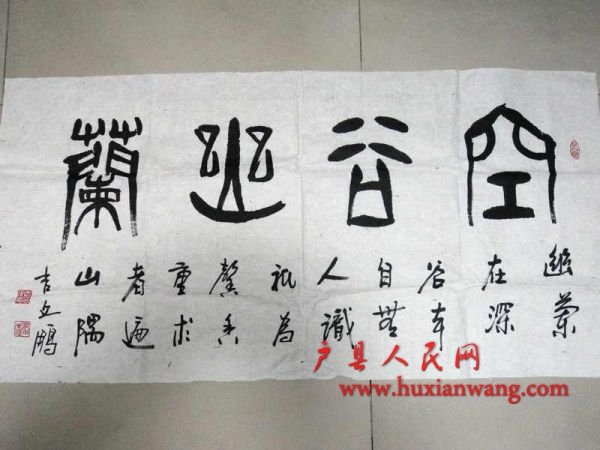 空谷幽蘭
幽蘭
在深
谷本
自無
人識
祇為
馨香
重求
者遍
山隅
吉 鵬
户县人民网
www.huxianwang.com